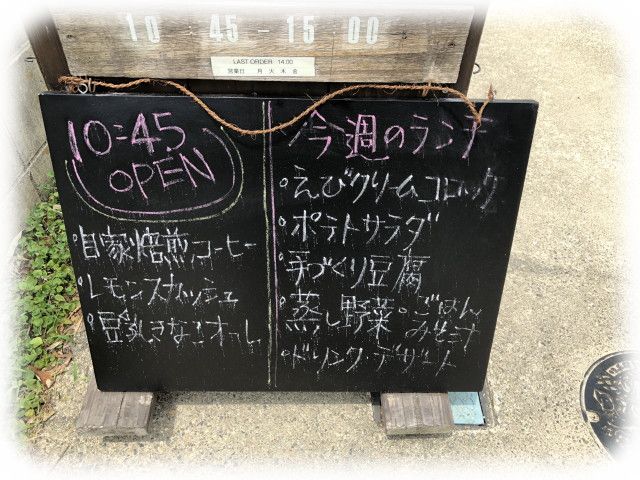 10:45-15:00
LAST ORDER 14:00
営業日 月 火 木 金
10:45
OPEN
・自家焙煎コーヒー
・レモンスカッシュ
・豆乳きなこオーレ
今週のランチ
・えびクリームコロッケ
・ポテトサラダ
・手づくり豆腐
・蒸し野菜・ごはん
みそ汁
・ドリンク デザート